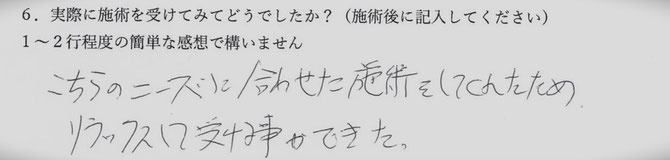 6．実際に施術を受けてみてどうでしたか？（施術後に記入してください）
1～2行程度の簡単な感想で構いません
こちらのニーズに合わせた施術をしてくれたため
リラックスして受ける事ができた。